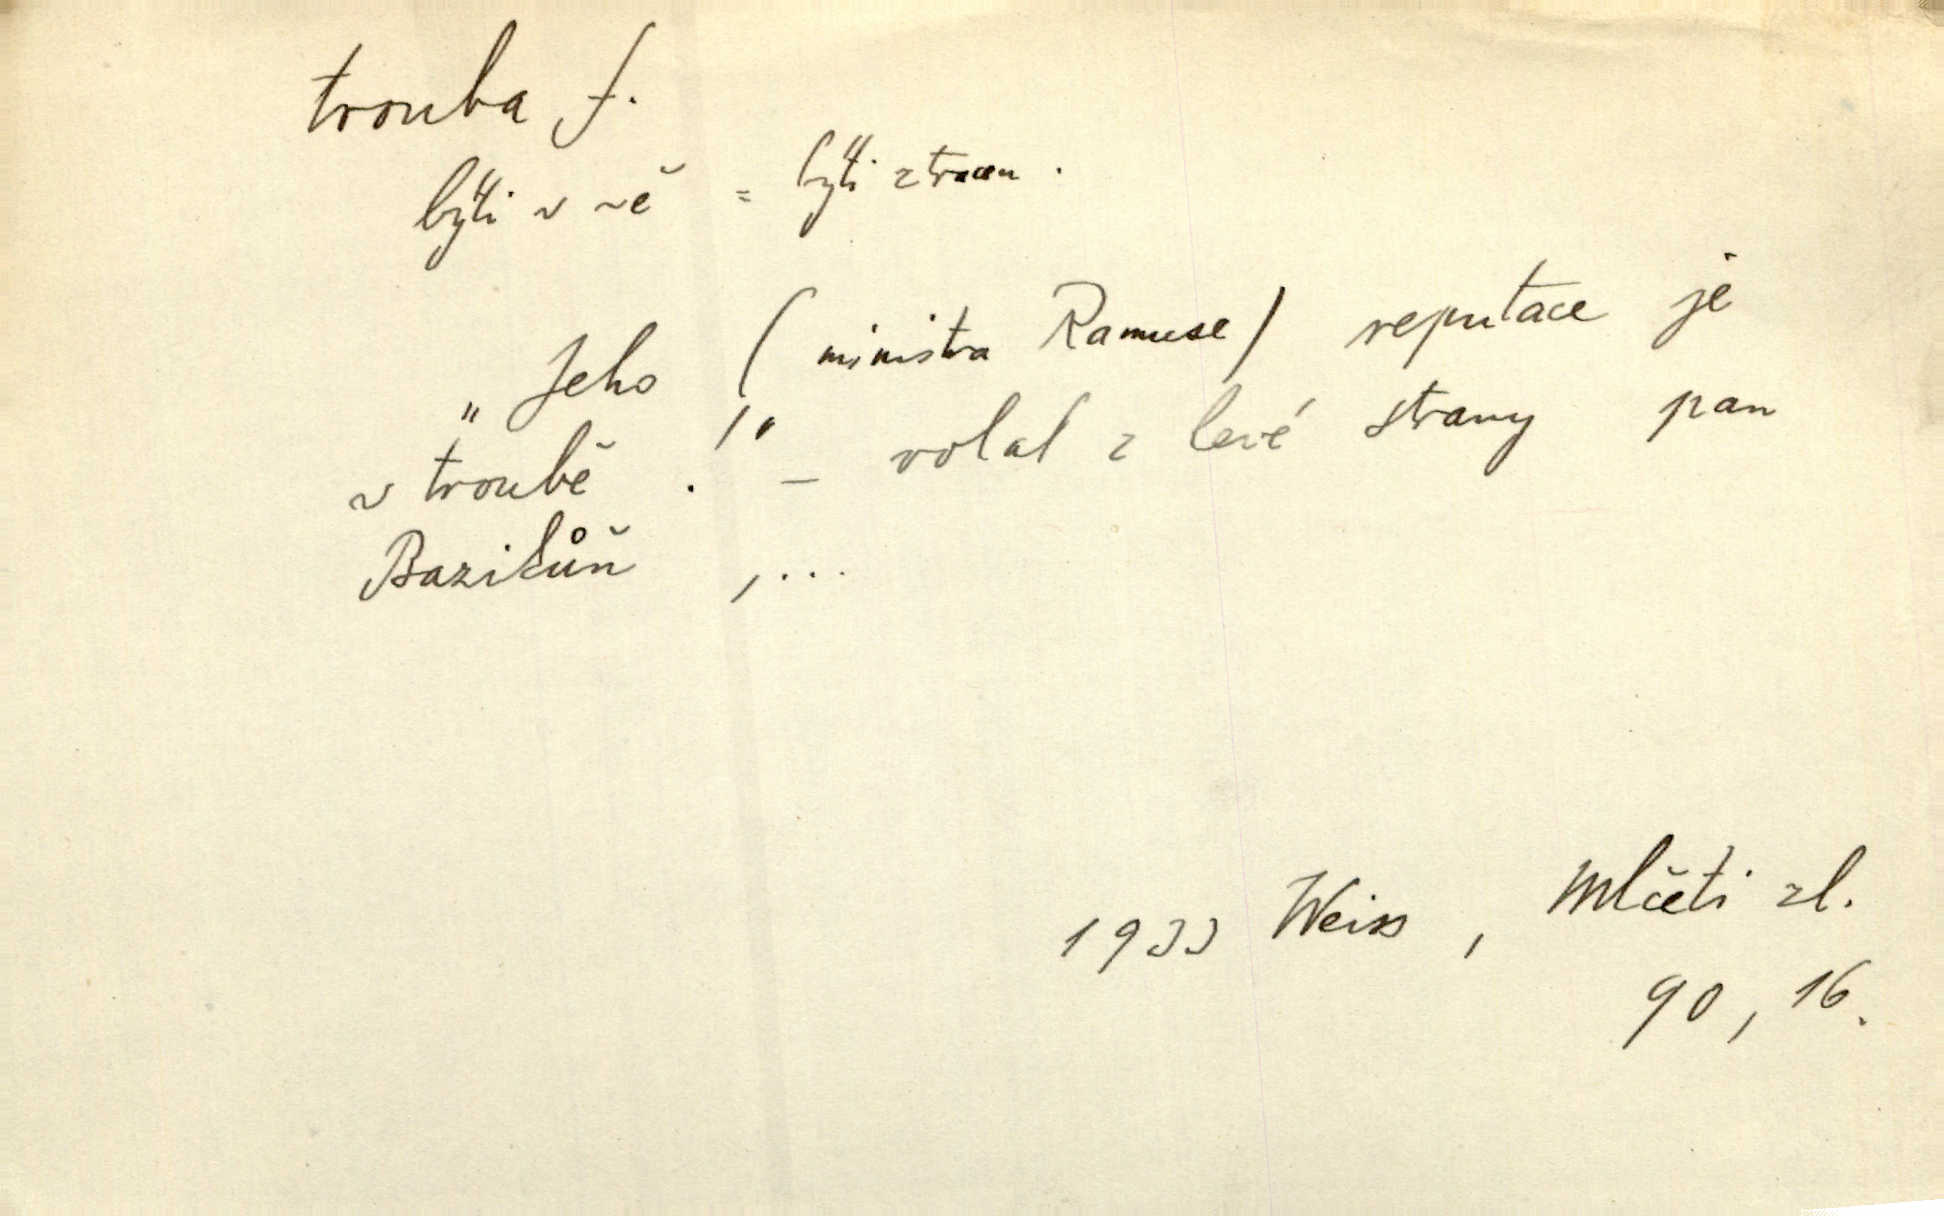 trouba f.
býti v ně = býti ztracen.
„Jeho (ministra Ramuse) reputace je
v troubě!" – volal z levé strany pan
Bazikůň, ...
1933 Weiss, Mlčeti zl.
90, 16.